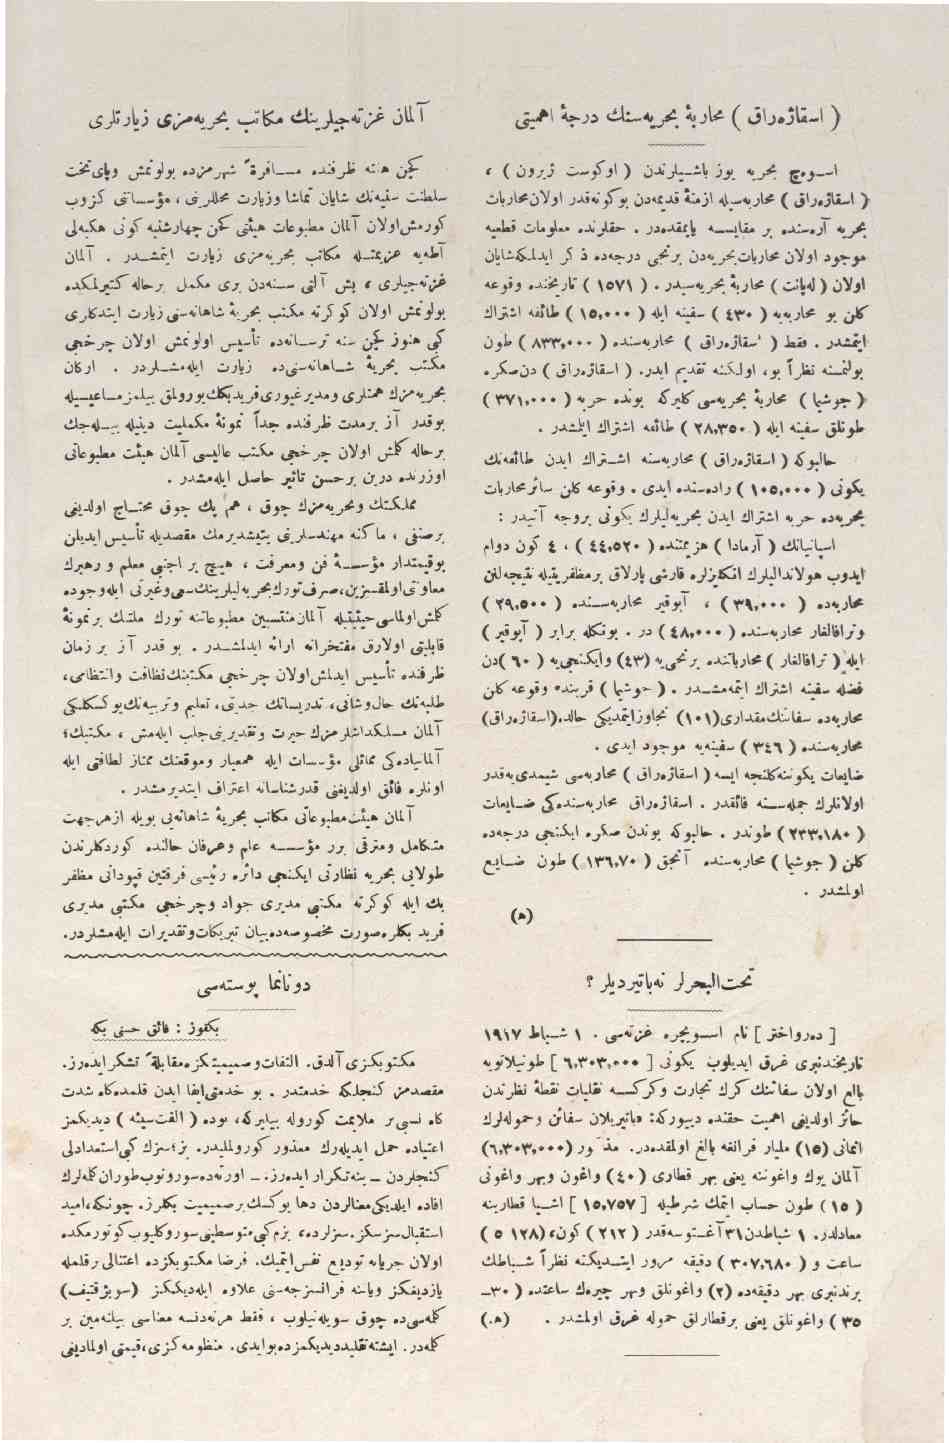 ( اسقاژه‌راق ) محاربهٔ بحریه‌سنك درجهٔ اهمیتی
اسوه‌چ بحریه یوز باشیلرندن ( اوكوست ژیرون ) ،
( اسقاژه‌راق ) محاربه‌سیله ازمنهٔ قدیمه‌دن بوكونه‌قدر اولان محاربات
بحریه آره‌سنده بر مقایسه یاپمقده‌در . حقلرنده معلومات قطعیه
موجود اولان محاربات بحریه‌دن برنجی درجه‌ده ذكر ایدلمكه شایان
اولان ( له‌پانت ) محاربهٔ بحریه‌سیدر . ( ١٥٧١ ) تاریخنده وقوعه
كلن بو محاربه‌یه ( ٤٣٠ ) سفینه ایله ( ١٥,٠٠٠ ) طائفه اشتراك
ایتمشدر . فقط ( اسقاژه‌راق ) محاربه‌سنده ( ٨٣٣,٠٠٠ ) طون
بولنمسنه نظراً بو، اولكنه تقدیم ایدر. ( اسقاژه‌راق ) دن صكره
( جوشیما ) محاربهٔ بحریه‌سی كلیركه بونده حربه ( ٣٧١,٠٠٠ )
طونلق سفینه ایله ( ٢٨,٣٥٠ ) طائفه اشتراك ایلمشدر .
حالبوكه ( اسقاژه‌راق ) محاربه‌سنه اشتراك ایدن طائفه‌نك
یكونی ( ١٠٥,٠٠٠ ) راده‌سنده ایدی . وقوعه كلن سائر محاربات
بحریه‌ده حربه اشتراك ایدن بحریه‌لیلرك یكونی بروجه آتیدر :
اسپانیانك ( آرمادا ) هزیمتنده ( ٤٤,٥٢٠ ) ، ٤ كون دوام
ایدوب هولاندالیلرك انكلیزلره قارشی پارلاق بر مظفریتیله نتیجه‌لنن
محاربه‌ده ( ٣٩,٠٠٠ ) ، آبوقیر محاربه‌سنده ( ٢٩,٥٠٠ )
وترافالغار محاربه‌سنده ( ٤٨,٠٠٠ ) در . بونكله برابر ( آبوقیر )
ایله ( ترافالغار ) محارباتنده برنجی‌یه (٤٣) وایكنجی‌یه ( ٦٠ )دن
فضله سفینه اشتراك ایتمه‌مشدر . ( جوشیما ) قربنده وقوعه كلن
محاربه‌ده سفائنك مقداری (١٠١) ی تجاوز ایتمدیكی حالده (اسقاژه‌راق)
محاربه‌سنده ( ٣٤٦ ) سفینه‌یه موجود ایدی .
ضایعات یكوننه كلنجه ایسه ( اسقاژه‌راق ) محاربه‌سی شیمدی‌یه‌قدر
اولانلرك جمله‌سنه فائقدر . اسقاژه‌راق محاربه‌سنده‌كی ضایعات
( ٢٣٣,١٨٠ ) طوندر . حالبوكه بوندن صكره ایكنجی درجه‌ده
كلن ( جوشیما ) محاربه‌سنده آنجق ( ١٣٦,٧٠ ) طون ضایع
اولمشدر .
(ه)
تحت‌البحرلر نه‌باتیردیلر ؟
[ ده‌رواختر ] نام اسویچره غزته‌سی . ١ شباط ١٩١٧
تاریخندنبری غرق ایدیلوب یكونی [ ٦,٣٠٣,٠٠٠ ] طونیلاتویه
بالغ اولان سفائنك كرك تجارت وكركسه نقلیات نقطهٔ نظرندن
حائز اولدیغی اهمیت حقنده دییوركه: «باتیریلان سفائن وحموله‌لرك
اثمانی (١٥) ملیار فرانقه بالغ اولمقده‌در. مذكور (٦,٣٠٣,٠٠٠)
آلمان یوك واغوننه یعنی بهر قطاری (٤٠) واغون وبهر واغونی
( ١٥ ) طون حساب ایتمك شرطیله [ ١٥,٧٥٧ ] اشیا قطارینه
معادلدر. ١ شباطدن ٣١ آغستوسه‌قدر ( ٢١٢ ) كون، (١٢٨ ٥ )
ساعت و ( ٣٠٧,٦٨٠ ) دقیقه مرور ایتدیكنه نظراً شباطك
برندنبری بهر دقیقه‌ده (٢) واغونلق وبهر چیره‌ك ساعتده ( ٣٠ــ
٣٥ ) واغونلق یعنی برقطارلق حموله غرق اولمشدر . (ه.)
آلمان غزته‌جیلرینك مكاتب بحریه‌مزی زیارتلری
كچن هفته ظرفنده مسافرةً شهرمزده بولونمش وپای‌تخت
سلطنت سنیه‌نك شایان تماشا وزیارت محللرینی ، مؤسساتنی كزوب
كورمش اولان آلمان مطبوعات هیئتی كچن چهارشنبه كونی هكبه‌لی
آطه‌یه عزیمتله مكاتب بحریه‌مزی زیارت ایتمشدر . آلمان
غزته‌جیلری ، بش آلتی سنه‌دن بری مكمل برحاله كتیرلمكده
بولونمش اولان كوكرته مكتب بحریهٔ شاهانه‌سنی زیارت ایتدكلری
كبی هنوز كچن سنه ترسانه‌ده تأسیس اولونمش اولان چرخجی
مكتب بحریهٔ شاهانه‌سنی‌ده زیارت ایله‌مشلردر . اركان
بحریه‌مزك همتلری ومدیر غیوری فریدبكك یورولمق بیلمز مساعیسیله
بوقدر آز برمدت ظرفنده جداً نمونهٔ مكملیت دینیله بیله‌جك
برحاله كلمش اولان چرخجی مكتب عالیسی آلمان هیئت مطبوعاتی
اوزرنده درین بر حسن تاثیر حاصل ایله‌مشدر .
مملكتك وبحریه‌مزك چوق ، هم پك چوق محتاج اولدیغی
برصنفی ، ماكنه مهندسلرینی یتیشدیرمك مقصدیله تأسیس ایدیلن
بوقیمتدار مؤسسهٔ فن ومعرفت ، هیچ بر اجنبی معلم و رهبرك
معاونتی اولمقسزین، صرف تورك بحریه‌لیلرینك سعی وغیرتی ایله وجوده
كلمش اولماسی حیثیتیله آلمان منتسبین مطبوعاتنه تورك ملتنك برنمونهٔ
قابلیتی اولارق مفتخرانه ارائه ایدلمشدر . بو قدر آز بر زمان
ظرفنده تأسیس ایدلمش اولان چرخجی مكتبنك نظافت وانتظامی،
طلبه‌نك حال وشانی، تدریساتك جدیتی، تعلیم وتربیه‌نك یوكسكلیكی
آلمان مسلكداشلرمزك حیرت وتقدیرینی جلب ایله‌مش ، مكتبك؛
آلمانیاده‌كی مماثلی مؤسسات ایله همعیار وموقعنك ممتاز لطافتی ایله
اونلره فائق اولدیغنی قدرشناسانه اعتراف ایتدیرمشدر .
آلمان هیئت مطبوعاتی مكاتب بحریهٔ شاهانه‌یی بویله ازهرجهت
متكامل ومترقی برر مؤسسه علم وعرفان حالنده كوردكلرندن
طولایی بحریه نظارتی ایكنجی دائره رئیسی فرقتین قپودانی مظفر
بك ایله كوكرته مكتبی مدیری جواد وچرخجی مكتبی مدیری
فرید بكلره صورت مخصوصه‌ده بیان تبریكات وتقدیرات ایله‌مشلردر.
دونانما پوسته‌سی
بكقوز : فائق حسنی بكه
مكتوبكزی آلدق. التفات وصمیمیتكزه مقابلةً تشكر ایده‌رز.
مقصدمز كنجلكه خدمتدر . بو خدمتی ایفا ایدن قلمده كاه شدت
كاه نسبی بر ملایمت كوروله بیلیركه، بوده ( الفت سیئه ) دیدیكمز
اعتیاده حمل ایدیله‌رك معذور كورولملیدر. بز؛ سزك كبی استعدادلی
كنجلردن ــ ینه تكرار ایده‌رز. ــ اورته‌ده سورونوب طوران كلمه‌لرك
افاده ایلدیكی معنالردن دها یوكسك برصمیمیت بكلرز. چونكه، امید
استقبال سزسكز. سزلرده، بزم كبی متوسطینی سوروكلیوب كوتورمكده
اولان جریانه تودیع نفس ایتمیك. فرضا مكتوبكزده اعتنالی برقلمله
یازدیغكز ویاننه فرانسزجه‌سنی علاوه ایله‌دیككز (سویژقتیف)
كلمه‌سی‌ده چوق سویله‌نیلوب ، فقط هرنه‌دنسه معناسی بیلنه‌مین بر
كلمه‌در. ایشته تقلید دیدیكمزده بوایدی. منظومه‌كزی، قیمتی اولمادیغی